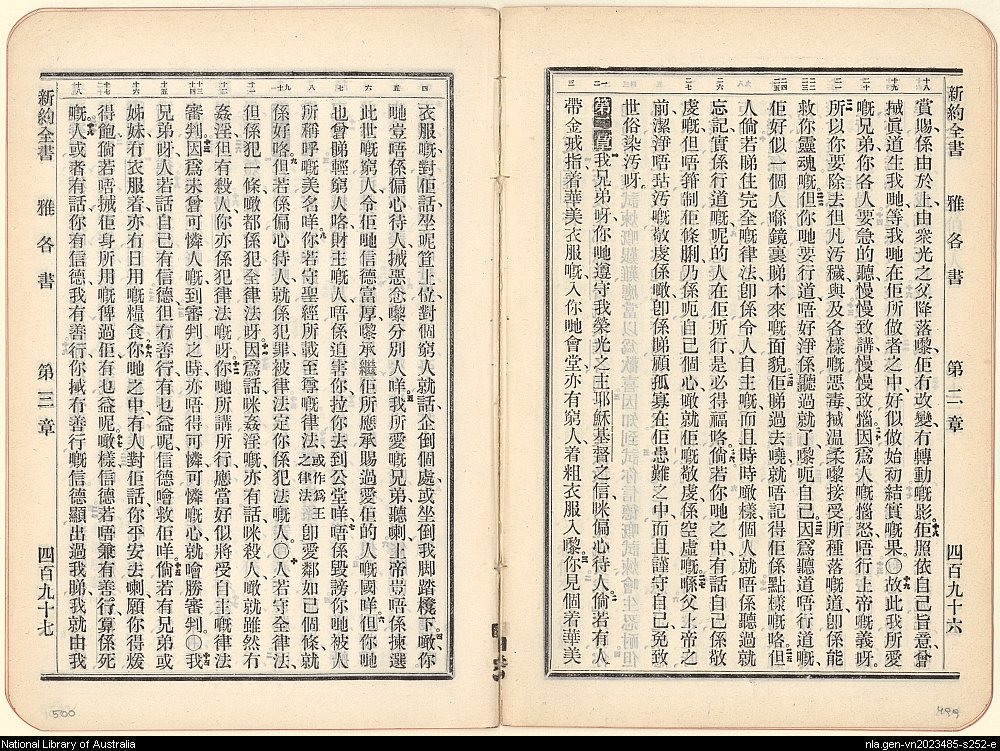 新約全書 雅各書 第二章 四百九十六
賞賜係由於上由衆光之父降落嚟佢冇改變冇轉動嘅影佢照依自己旨意曾
搣眞道生我哋等我哋在佢所做者之中好似做始初結實嘅果〇故此我所愛
嘅兄弟你各人要急的聽慢慢致講慢慢致惱因爲人嘅惱怒唔行上帝嘅義呀
所以你要除去但凡汚穢與及各樣嘅惡毒搣温柔嚟接受所種落嘅道卽係能
救你靈魂嘅但你哋要行道唔好淨係聽過就了嚟呃自己因爲聽道唔行道嘅
佢好似一個人喺鏡裏睇本來嘅面貌佢睇過去嘵就唔記得佢係點樣嘅咯但
人倘若睇住完全嘅律法卽係令人自主嘅而且時時噉樣個人就唔係聽過就
忘記實係行道嘅呢的人在佢所行是必得福咯倘若你哋之中有話自己係敬
虔嘅但唔箝制佢條脷乃係呃自己個心噉就佢嘅敬虔係空虛嘅喺父上帝之
前潔淨唔玷汚嘅敬虔係噉卽係睇顧孤寡在佢患難之中而且謹守自己免致
世俗染汚呀
第二章我兄弟呀你哋遵守我榮光之主耶穌基督之信咪偏心待人倘若有人
帶金戒指着華美衣服嘅入你哋會堂亦有窮人着粗衣服入嚟你見個着華美
衣服嘅對佢話坐呢笪上位對個窮人就話企倒個處或坐倒我脚踏櫈下噉你
哋豈唔係偏心待人搣惡念嚟分別人咩我所愛嘅兄弟聽喇上帝豈唔係揀選
此世嘅窮人令佢哋信德富厚嚟承繼佢所應承賜過愛佢的人嘅國咩但你哋
也曾睇輕窮人咯財主嘅人唔係逼害你拉你去到公堂咩唔係毀謗你哋被人
所稱呼嘅美名咩你若守聖經所載至尊嘅律法或作爲王之律法卽愛鄰如己個條就
係好咯但若係偏心待人就係犯罪被律法定你係犯法嘅人〇人若守全律法
但係犯一條噉都係犯全律法呀因爲話咪姦淫嘅亦有話咪殺人噉就雖然冇
姦淫但有殺人你亦係犯律法嘅呀你哋所講所行應當好似將受自主嘅律法
審判因爲未曾可憐人嘅到審判之時亦唔得可憐可憐嘅心就噲勝審判〇我
兄弟呀人若話自己有信德但冇善行有乜益呢信德噲救佢咩倘若有兄弟或
姊妹冇衣服着亦冇日用嘅糧食你哋之中有人對佢話你平安去喇願你得煖
得飽倘若唔搣佢身所用嘅俾過佢有乜益呢噉樣信德若唔兼有善行算係死
嘅人或者有話你有信德我有善行你搣冇善行嘅信德顯出過我睇我就由我
新約全書 雅各書 第三章 四百九十七
500
499
National Library of Australia
nla.gen-vn2023485-s252-e